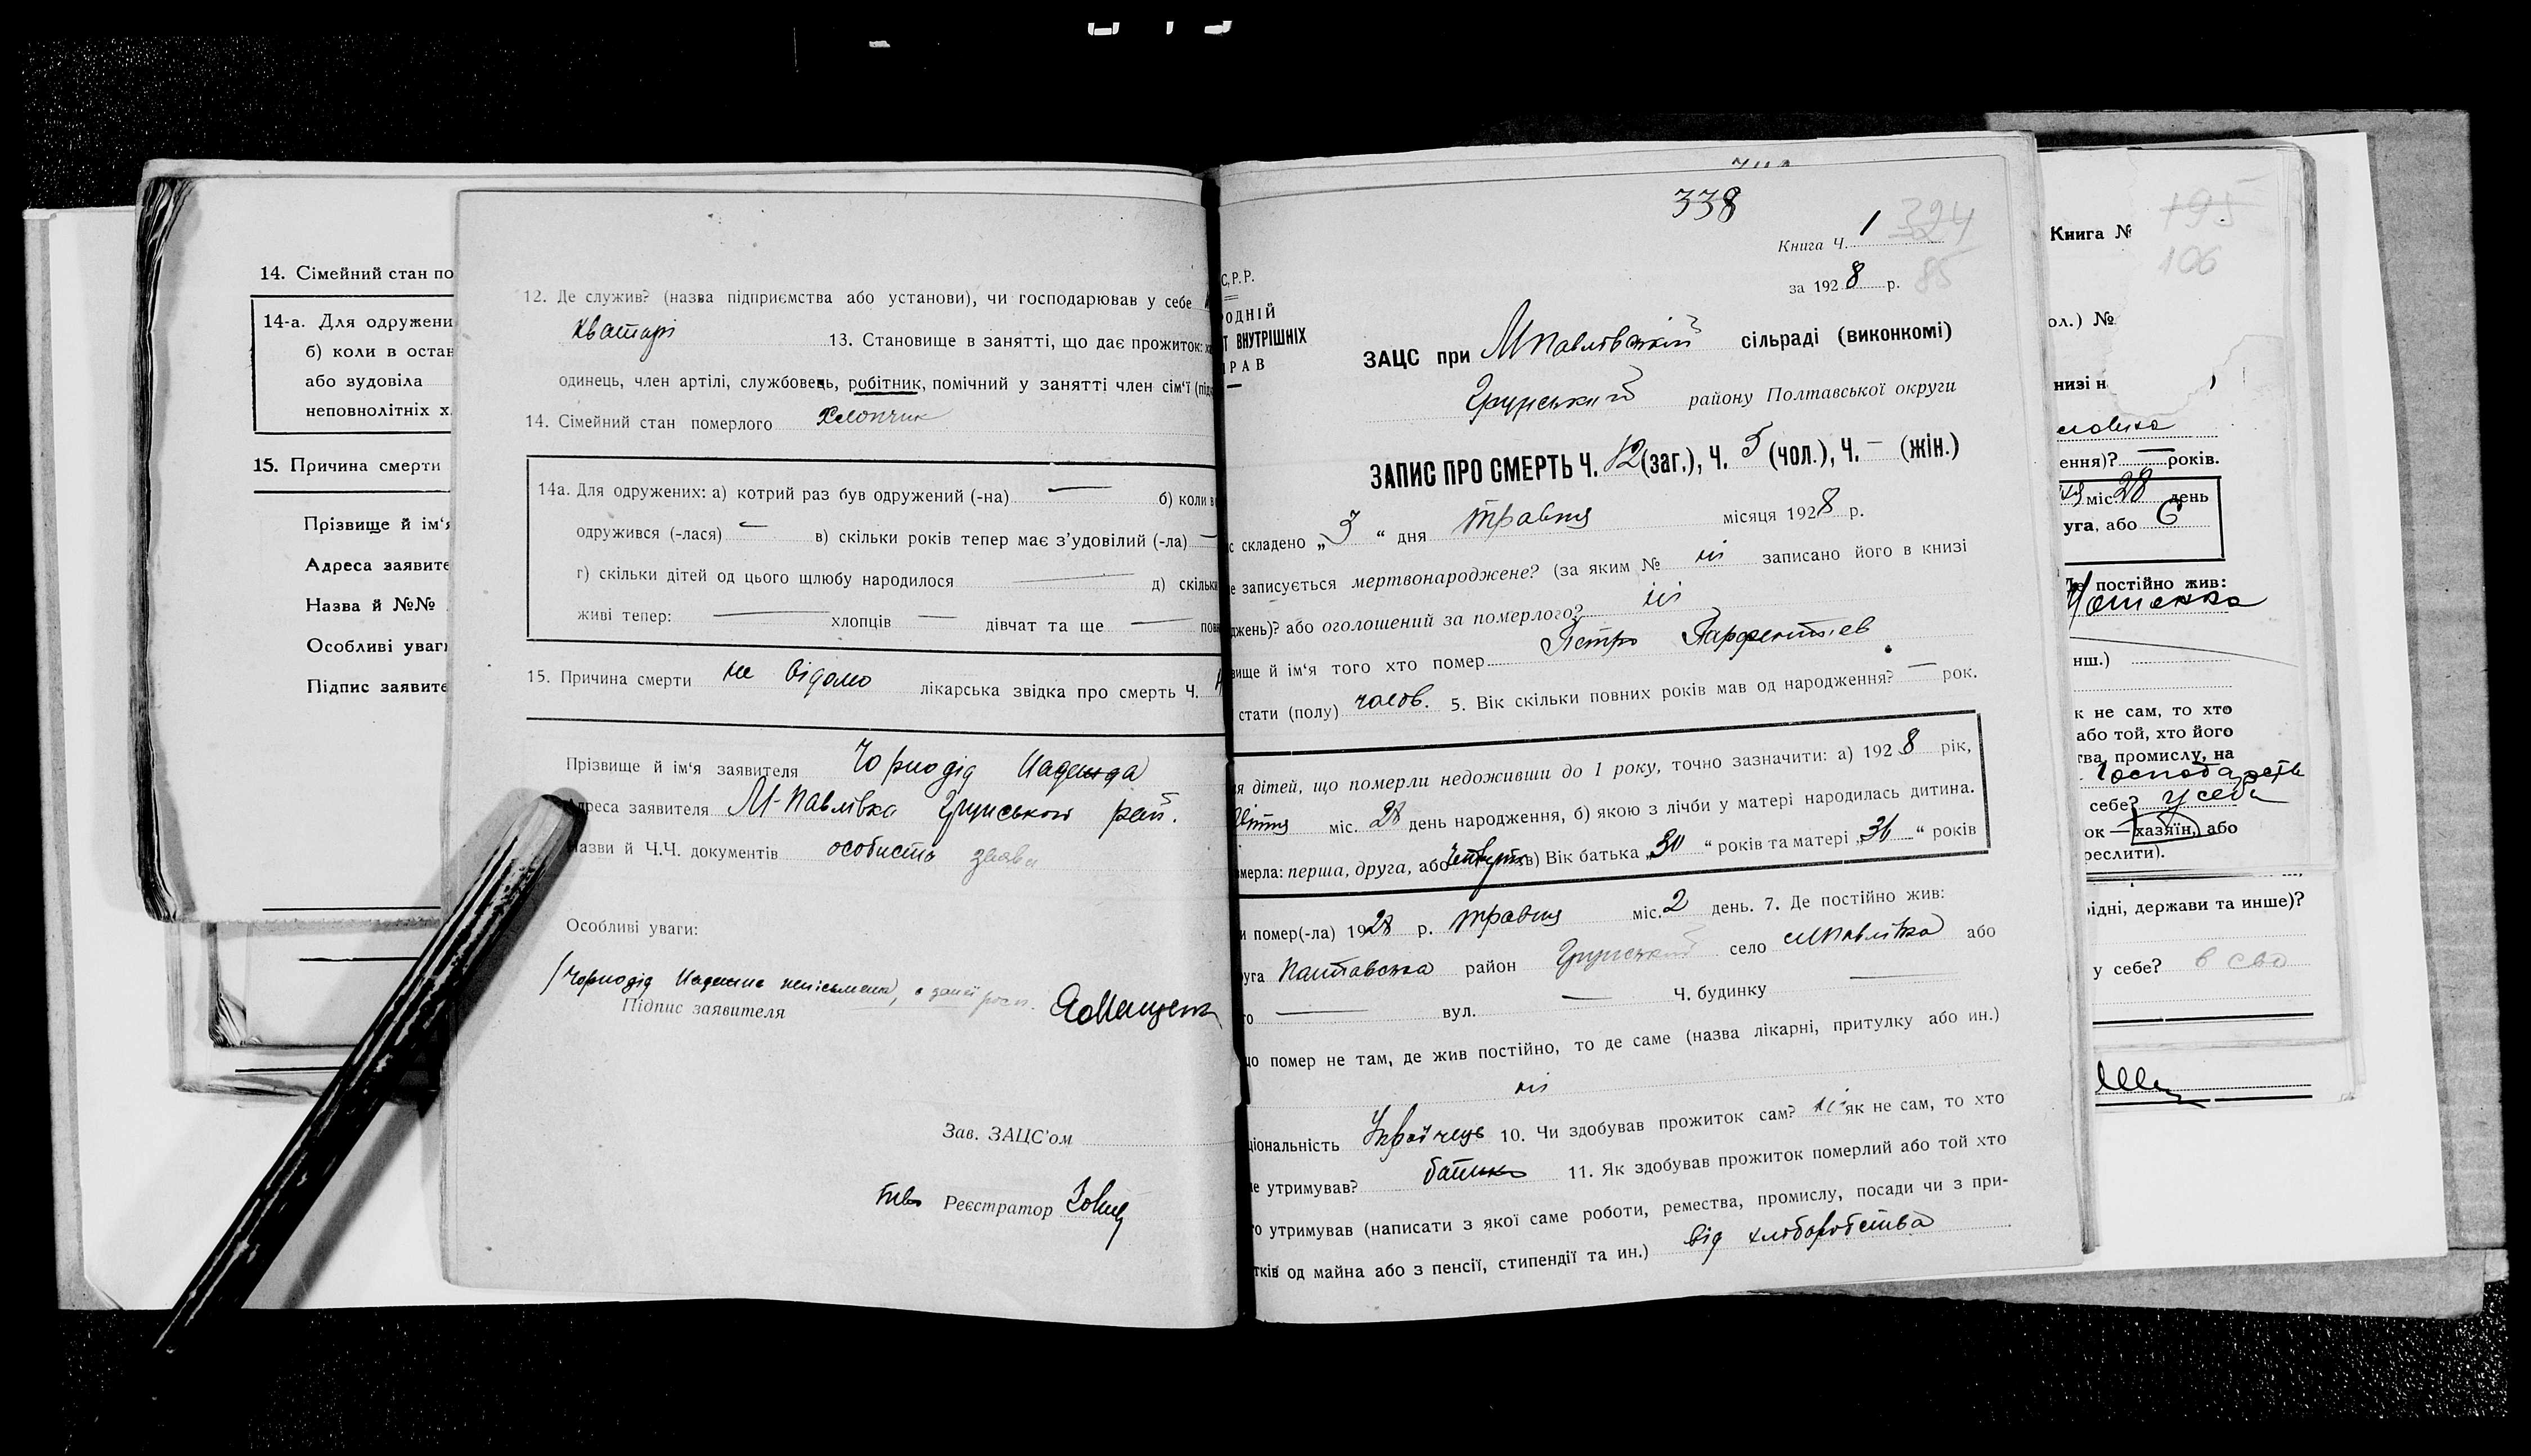 14. Сімейний стан по
14-а. Для одружени
б) коли в остан
або вудовіла
неповнолітніх х
15. Причина смерти
Прізвище й ім'я
Адреса заявите
Назва й №№
Особливі уваги
Підпис заявите
12. Де служив? (назва підприємства або установи), чи господарював у себе
13. Становище в занятті, що дає прожиток:
одинець, член артілі, службовець, робітник, помічний у занятті член сім'ї
14. Сімейний стан померлого Хлопчик
14а. Для одружених: а) котрий раз був одружений (-на) — б) коли
одружився (-лася) — в) скільки років тепер має з'удовілий (-ла) —
г) скільки дітей од цього шлюбу народилося — д) скільки
живі тепер: — хлопців — дівчат та ще —
15. Причина смерти не відомо лікарська звідка про смерть Ч.
Прізвище й ім'я заявителя Чорнодід Надежда
Адреса заявителя М-Павлівка Грунського рай.
Назви й Ч.Ч. документів особиста заява
Особливі уваги:
(Чорнодід
Підпис заявителя
Зав. ЗАЦС'ом
Реєстратор
338
Книга Ч. 1 324
за 1928 р. 85
С.Р.Р.
РОДНІЙ
Т ВНУТРІШНІХ
РАВ
ЗАЦС при МПавлівській сільраді (виконкомі)
Грунський району Полтавської округи
ЗАПИС ПРО СМЕРТЬ Ч. 12 (заг.), Ч. 5 (чол.), Ч. — (жін.)
с складено „3“ дня травня місяця 1928 р.
е записується мертвонароджене? (за яким № ні записано його в книзі
джень)? або оголошений за померлого? ні
вище й ім'я того хто помер Петро Парфентіев
стати (полу) чолов. 5. Вік скільки повних років мав од народження? — рок.
я дітей, що померли недоживши до 1 року, точно зазначити: а) 1928 рік,
міс. 28 день народження, б) якою з лічби у матері народилась дитина.
мерла: перша, друга, або четверта в) Вік батька „30“ років та матері „31“ років
и помер(-ла) 1928 р. травня міс. 2 день. 7. Де постійно жив:
уга Полтавська район Грунський село МПавлівка або
го — вул. — Ч. будинку —
що помер не там, де жив постійно, то де саме (назва лікарні, притулку або ин.)
ні
ціональність Українець 10. Чи здобував прожиток сам? ні як не сам, то хто
не утримував? батько 11. Як здобував прожиток померлий або той хто
го утримував (написати з якої саме роботи, ремества, промислу, посади чи з при-
тків од майна або з пенсії, стипендії та ин.) від хліборобства
Книга № 195
106
ол.) №
низі н
ення)? — років.
міс. 28 день
уга, або 6
Де постійно жив:
нш.)
к не сам, то хто
або той, хто його
тва, промислу, на
себе? у себе
ок — хазяїн, або
реслити).
ідні, держави та инше)?
у себе?